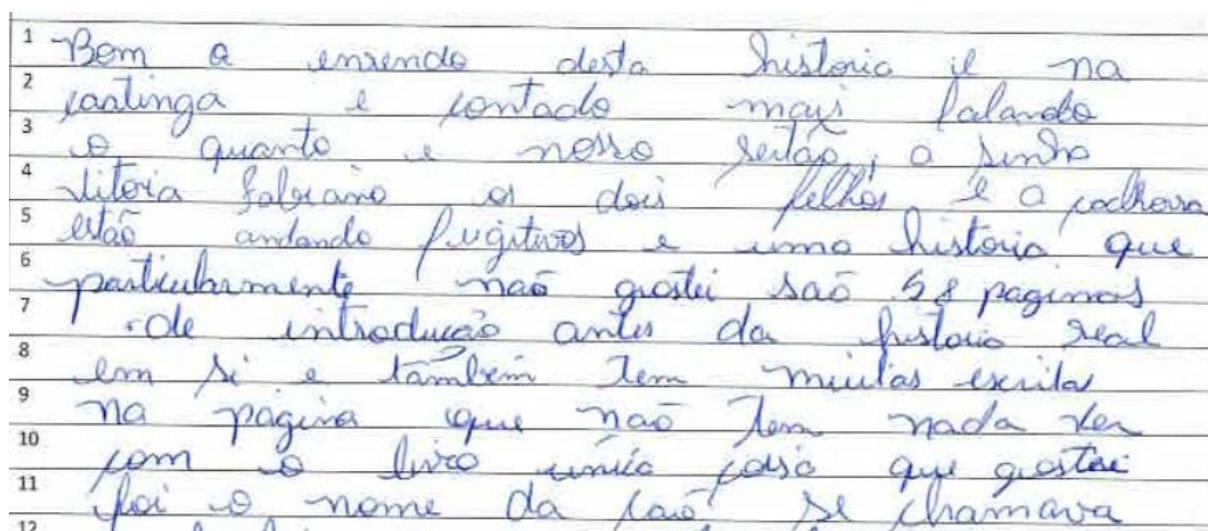 1 Bom a enrendo desta historia é na
2 caatinga e contado mais falando
3 o quanto e nosso seitão, a sinho
4 vitoria fabiano os dois filhos e a cachorra
5 estão andando fugitivos e uma historia que
6 particularmente não gostei são 58 paginas
7 de introdução antes da historia real
8 em si e também tem muitas escritas
9 na página que não tem nada ver
10 com o livro unica coisa que gostei
11 foi o nome da cão se chamava
12